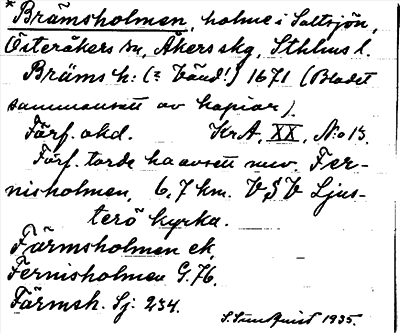 *Brämsholmen, holme i Saltsjön,
Österåkers sn, Åkers skg, Sthlms l.
Bräms h: (= bänd!) 1671 (Bladet
sammansatt av kopior).
Förf. okd. KrA, XX, No 13.
Förf. torde ha avsett nuv. Fer-
nisholmen, 6,7 km. V S V Ljus-
terö kyrka.
Färmsholmen ek.
Fernisholmen G.76.
Färmsh. Sj: 234.
S. Sundquist 1935.